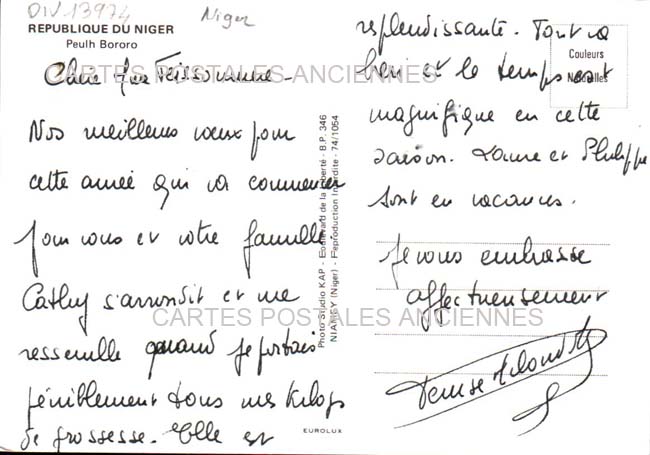 DIV 13974
Niger
REPUBLIQUE DU NIGER
Peulh Bororo
CARTES POSTALES ANCIENNES
Chère
Nos meilleurs vœux pour
cette année qui va commencer
pour vous et votre famille
Cathy s'arrondit et me
ressemble quand je portais
péniblement tous mes kilogs
de grossesse. Elle est
Photo Studio KAP - Boulevard de la Liberté - B.P. 346
NIAMEY (Niger) - Reproduction Interdite - 74/1054
EUROLUX
Couleurs
Naturelles
resplendissante. Tout va
bien et le temps est
magnifique en cette
saison. Laure et Philippe
sont en vacances.
Je vous embrasse
affectueusement
CARTES POSTALES ANCIENNES
Denise